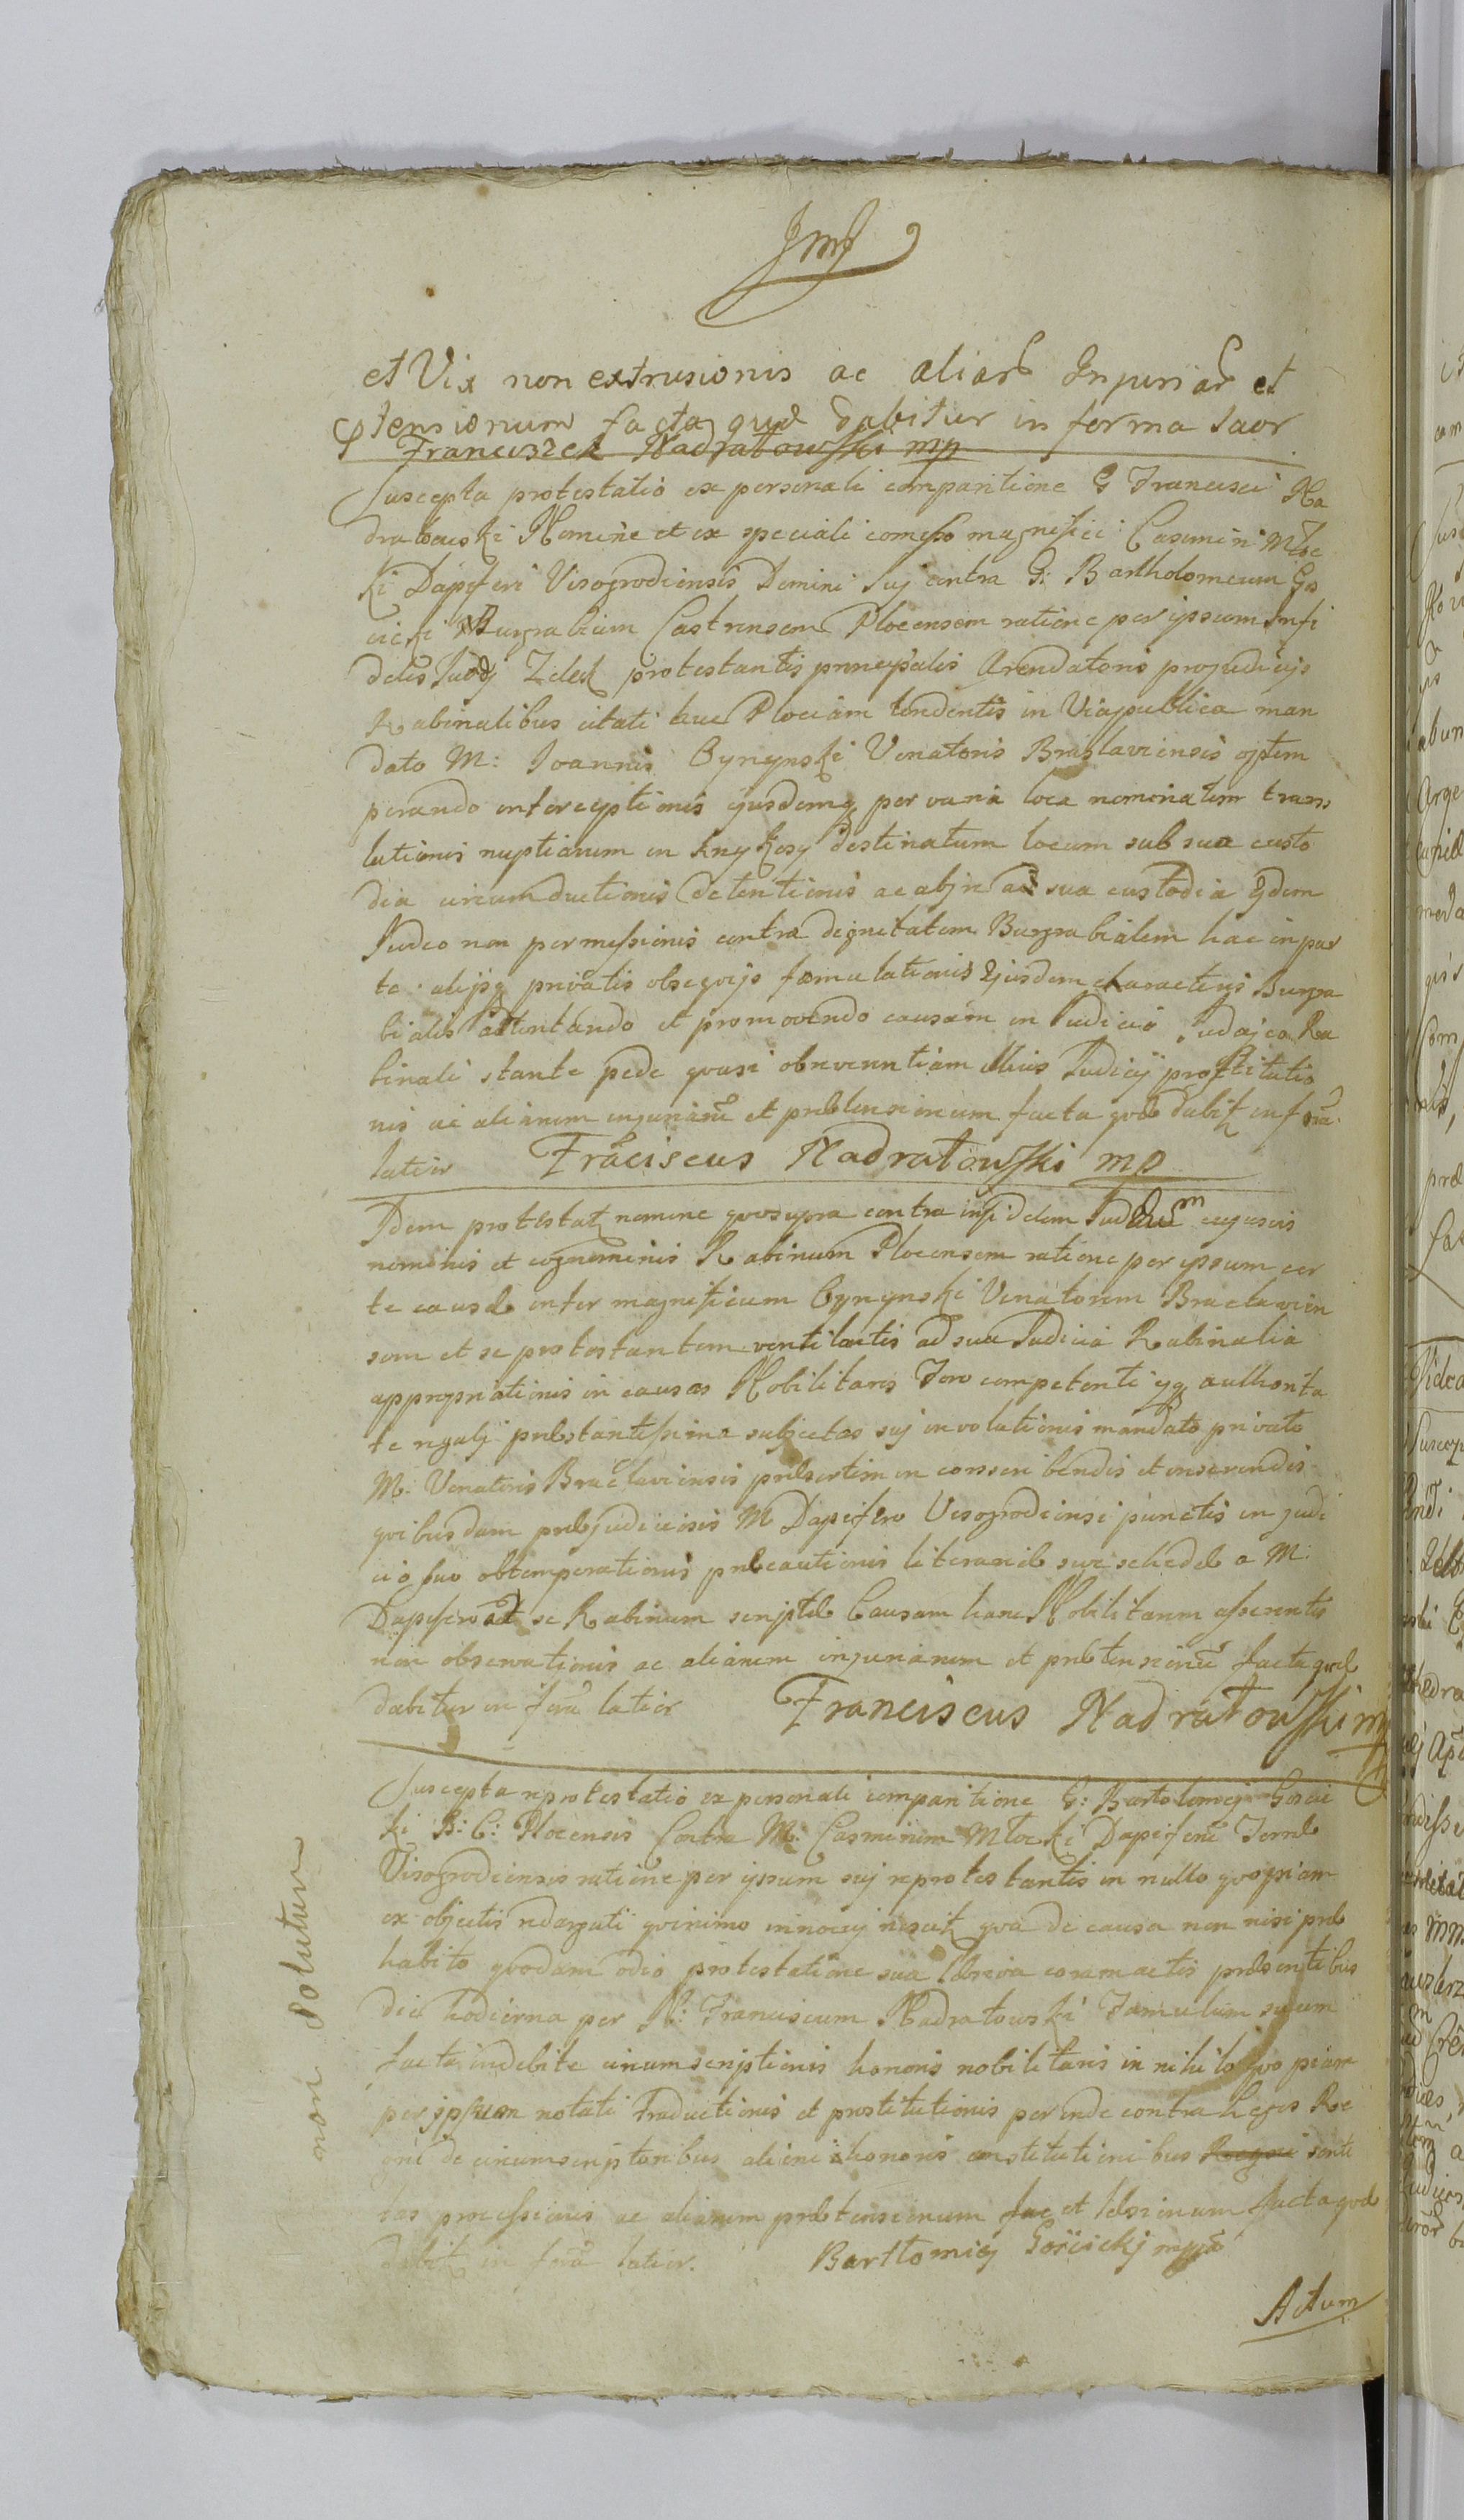 JMJ
et Vix non extrusionis ac aliar Injuriar et
ptensionum facta quæ dabitur in forma laor
Franciszek Nadratowski mp
Suscepta protestatio ex personali comparitione G Francisci Na
dratowski Nomine et ex speciali comisso magnifici Casimiri Młoc
ki Dapiferi Visogrodiensis Domini Suj contra G: Bartholomeum Gos
cicki Burgrabium Castrensem Plocensem ratione per ipsum Infi
delis Judæj Zelek protestantis principalis Arendatoris pro judicijs
Rabinalibus citati huc Plociam tendentis in Via publica man
dato M: Joannis Cyrynski Venatoris Braslaviensis optem
perando interceptionis ejusdemq per varia loca nominatim trans
lationis nuptiarum in destinatum locum sub sua custo
dia circumductionis detentionis ac abire a sua custodia eidem
Judeo non permissionis contra dignitatem Burgrabialem hac in par
te alijsq privatis obsequijs famulationis Ejusdem characteris Burgra
bialis attentando et promovendo causam in Judicio Judajco Ra
binali stante pede quasi ob reverentiam illius Judicij prostitutio
nis ac aliarum injuriarū et prætensionum facta quæ dabitr in forā
latior Franciscus Nadratowski mp
Idem protestatr nomine quo supra contra infidelem Judæum cujusvis
nominis et cognominis Rabinum Plocensem ratione per ipsum cer
te causæ inter magnificum Cyrynski Venatorem Braclavien
sem et se protestantem ventilatis ad sua Judicia Rabinalia
appropriationis in causas Nobilitaris Foro competenti authorita
te regalj præstantissima subjectas suj involutionis mandato privato
M: Venatoris Braclaviensis præsertim in conscribendis et inserendis
quibusdam præjudiciosis M Dapifero Visogrodiensi punctis in judi
cio suo obtemperationis præcautionis literariæ sive schedæ a M:
Dapifero ad se Rabinum scriptæ Causam hanc Nobilitarem asserentis
non observationis ac aliarum injuriarum et prætensionū facta quæ
dabitur in forā latior Franciscus Nadratowski mp
Suscepta reprotestatio ex personali comparitione G: Bartolomej Goscic
ki B: C: Plocensis Contra M: Casimirum Młocki Dapiferū Terræ
Visogrodiensis ratione per ipsum suj reprotestantis in nullo quopiam
ex objectis redarguti quinimo innocuj nescitr qua de causa non nisi præ
habito quodam odio protestatione sua coram actis præsentibus
die hodierna per N: Franciscum Nadratowski Famulum suum
facta indebite circumscriptionis honoris nobilitaris in nihilo quopiam
per ipsum notati traductionis et prostitutionis perinde contra Leges Re
gni de circumscriptoribus alieni honoris constitutionibus Regni sanci
tas processionis ac aliarum prætensionum facta quæ
dabitr in forā latior. Bartłomiej Gościckj mppa
Actum
non solutum